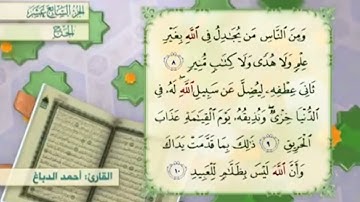 الجزء السابع عشر
الحج
وَمِنَ ٱلنَّاسِ مَن يُجَٰدِلُ فِي ٱللَّهِ بِغَيۡرِ
عِلۡمٖ وَلَا هُدٗى وَلَا كِتَٰبٖ مُّنِيرٖ ٨
ثَانِيَ عِطۡفِهِۦ لِيُضِلَّ عَن سَبِيلِ ٱللَّهِۖ لَهُۥ فِي
ٱلدُّنۡيَا خِزۡيٞۖ وَنُذِيقُهُۥ يَوۡمَ ٱلۡقِيَٰمَةِ عَذَابَ
ٱلۡحَرِيقِ ٩ ذَٰلِكَ بِمَا قَدَّمَتۡ يَدَاكَ
وَأَنَّ ٱللَّهَ لَيۡسَ بِظَلَّٰمٖ لِّلۡعَبِيدِ ١٠
القارئ: أحمد الدباغ